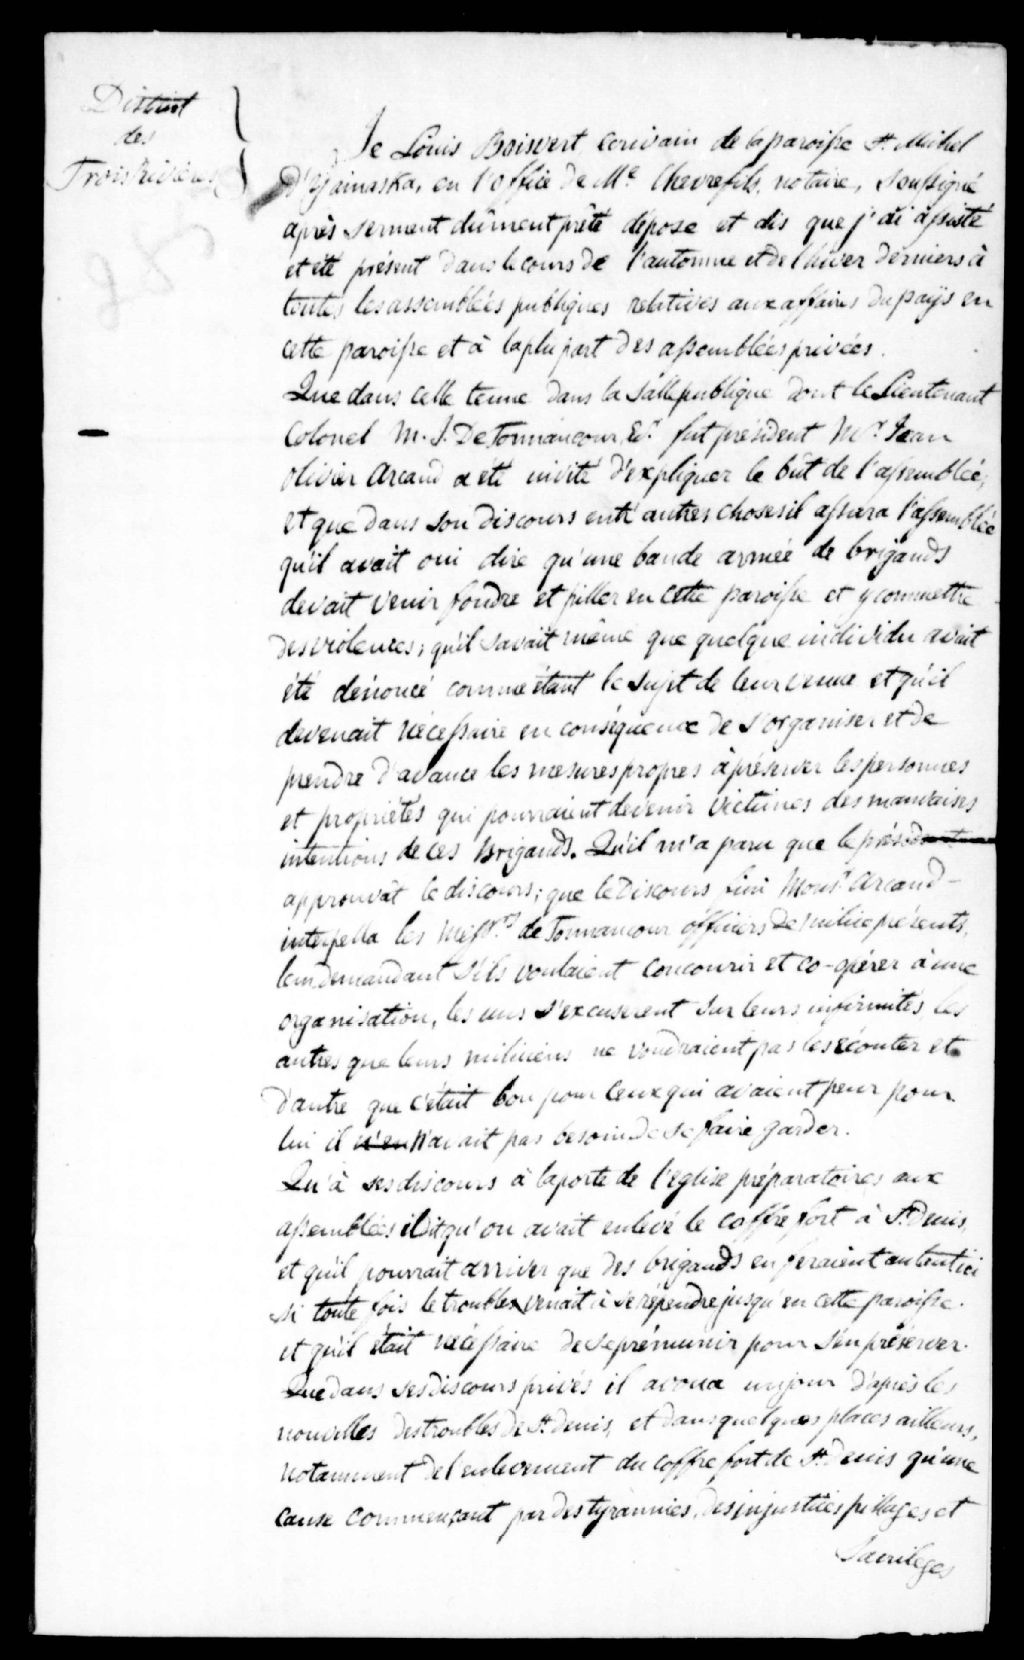 District
des
Trois Rivières
Je Louis Boisvert ecrivain de la paroisse St. Michel
d'Yamaska, en l'office de Me. Chevrefils, notaire, soussigné
après serment dûment prêté dépose et dis que j'ai assisté
et été présent dans le cours de l'automne et de l'hiver derniers à
toutes les assemblées publiques relatives aux affaires du païs en
cette paroisse et à la plupart des assemblées privées.
Que dans celle tenue dans la salle publique dont le Lieutenant
Colonel M. J. DeTonnancour, Er. fut président Mr. Jean
Olivier Arcand a été invité d'expliquer le bût de l'assemblée,
et que dans son discours entr'autres choses il assura l'assemblée
qu'il avait oui dire qu'une bande armée de brigands
devait venir fondre et piller en cette paroisse et y commettre
des violences; qu'il savait même que quelque individu avait
été dénoncé comme étant le sujet de leur venue et qu'il
devenait nécessaire en conséquence de s'organiser et de
prendre d'avance les mesures propres à préserver les personnes
et propriétés qui pourraient devenir victimes des mauvaises
intentions de ces Brigands. Qu'il m'a paru que le président
approuvât le discours; que le Discours fini Monsr. Arcand -
interpella les Messrs. de Tonnancour officiers de milice présents,
leur demandant s'ils voulaient concourir et co-opérer à une
organisation, les uns s'excuserent sur leurs infirmités les
autres que leurs miliciens ne voudraient pas les écouter et
d'autre que c'était bon pour ceux qui avaient peur pour
lui il n'en n'avait pas besoin de se faire garder.
Qu'à ses discours à la porte de l'eglise préparatoires aux
assemblées il dit qu'on avait enlevé le coffre fort à St. Denis,
et qu'il pourrait arriver que des brigands en feraient autant ici
si toute fois le trouble venait à se répendre jusqu'en cette paroisse.
et qu'il était nécéssaire de se prémunir pour s'en préserver.
Que dans ses discours privés il avoua un jour d'après les
nouvelles des troubles de St. Denis, et dans quelques places ailleurs,
notamment de l'enlevement du coffre fort de St. Denis qu'une
cause commençant par des tyrannies, des injustices pillages et
Sacriléges